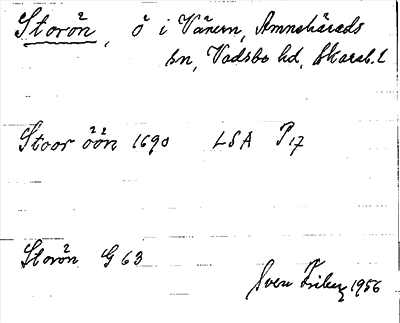 Storön, ö i Vänern, Amnehärads
sn, Vadsbo hd, Skarab. l
Stoor öön 1690 LSA P17
Storön G 63
Sven Friberg 1956